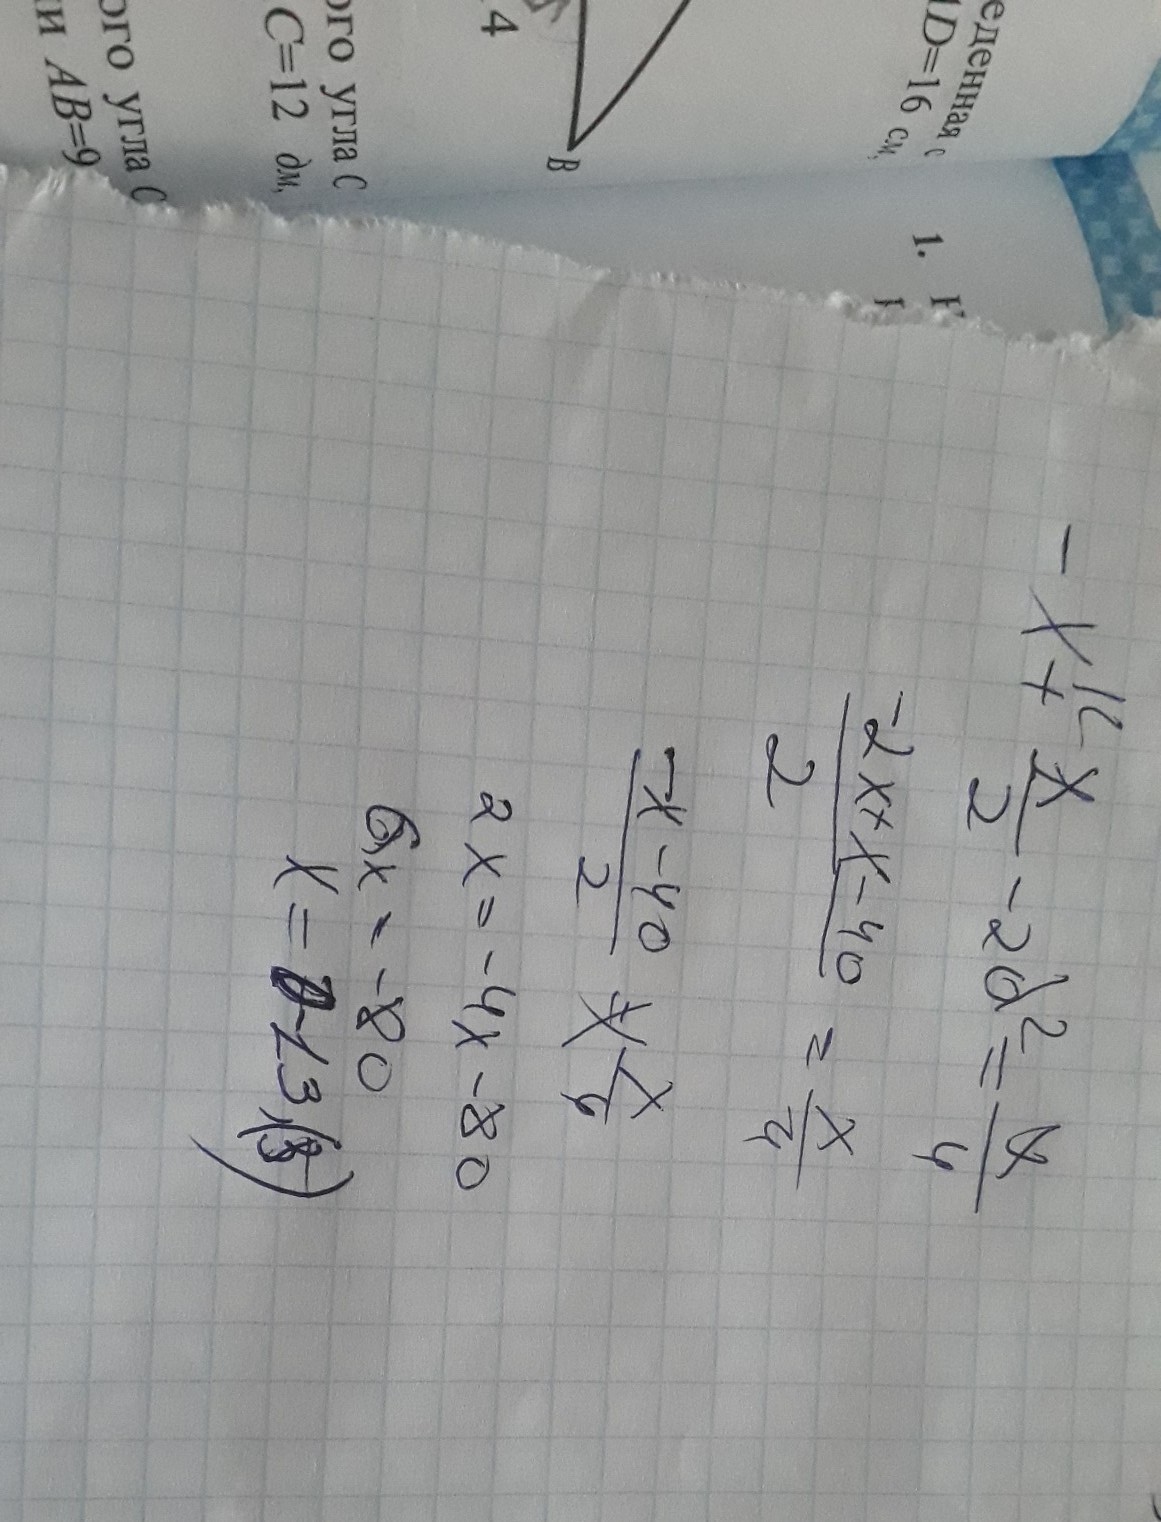 еденная с
D=16 см,
1.
4
B
ого угла C
C=12 дм,
ого угла C
и AB=9
-x + x/2 - 20 = x/4
(-2x+x-40)/2 = x/4
(-x-40)/2 = x/4
2x = -4x - 80
6x = -80
x = -13,(3)